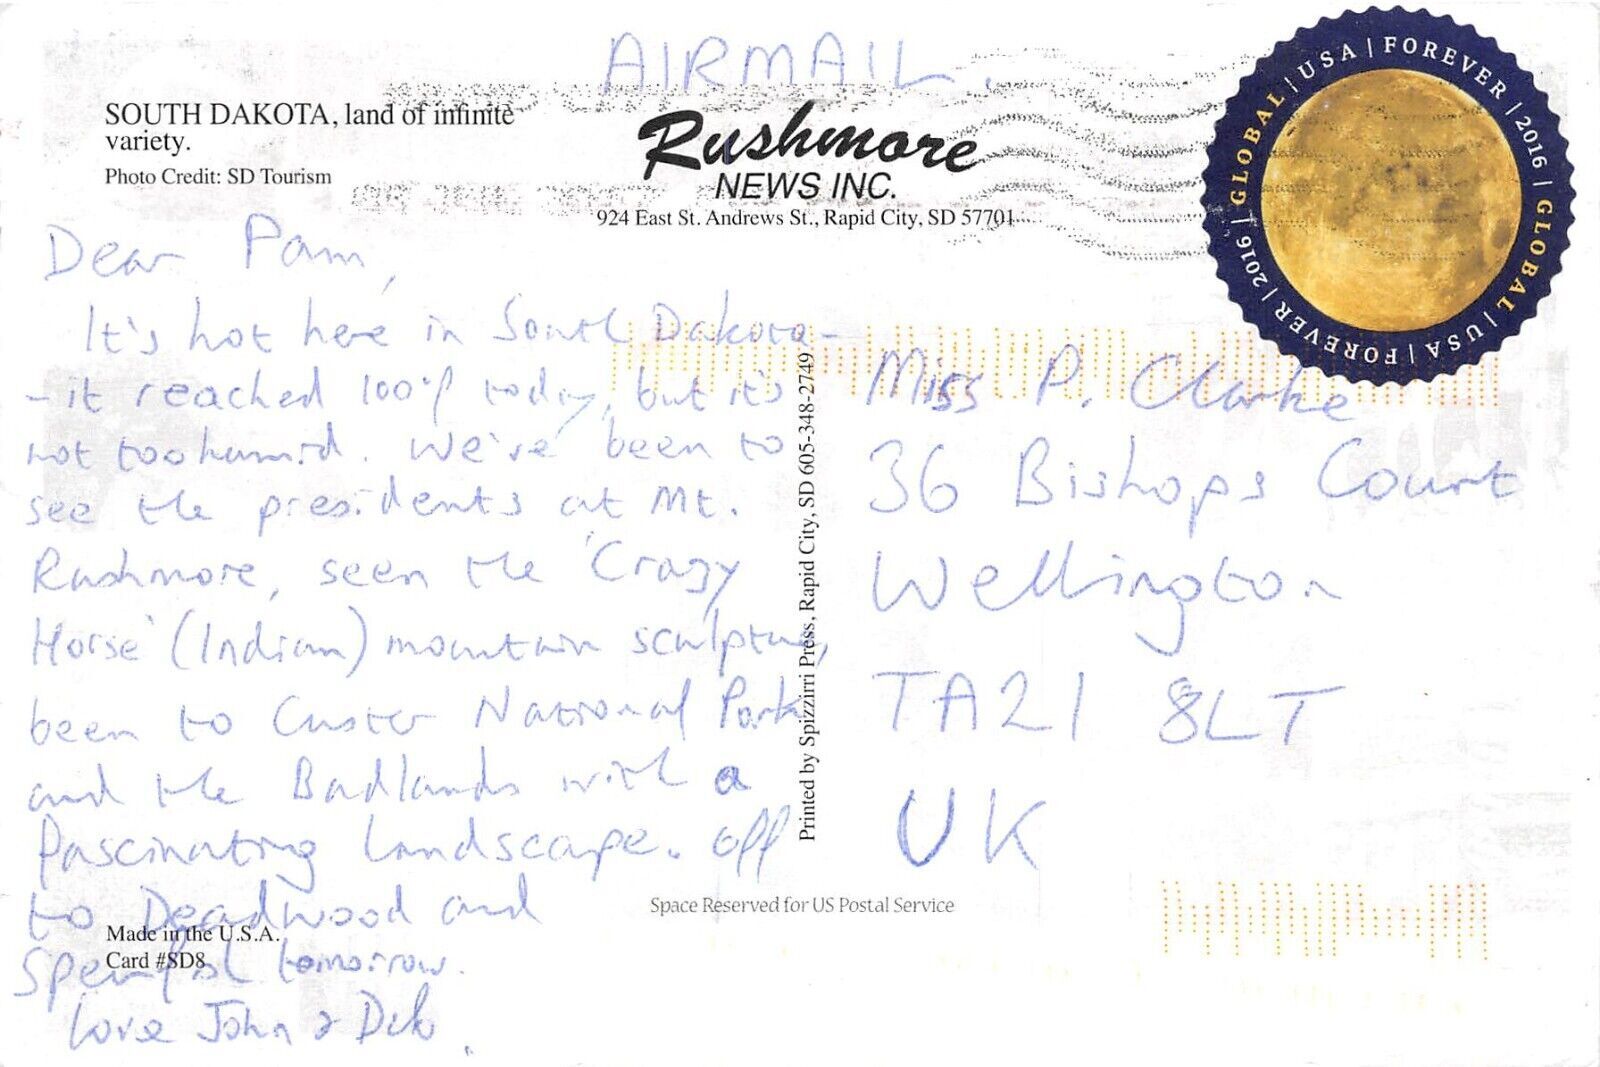 AIRMAIL.
SOUTH DAKOTA, land of infinite
variety.
Photo Credit: SD Tourism
Rushmore
NEWS INC.
924 East St. Andrews St., Rapid City, SD 57701
GLOBAL | USA | FOREVER | 2016 | GLOBAL | USA | FOREVER | 2016 |
Dear Pam,
It's hot here in South Dakota -
- it reached 100°f today, but it's
not too humid. We've been to
see the presidents at Mt.
Rushmore, seen the 'Crazy
Horse' (Indian) mountain sculpture,
been to Custer National Park
and the Badlands with a
fascinating landscape. Off
to Deadwood and
Spearfish tomorrow.
Love John & Deb.
Made in the U.S.A.
Card #SD8
Printed by Spizzirri Press, Rapid City, SD 605-348-2749
Miss P. Clarke
36 Bishops Court
Wellington
TA21 8LT
UK
Space Reserved for US Postal Service